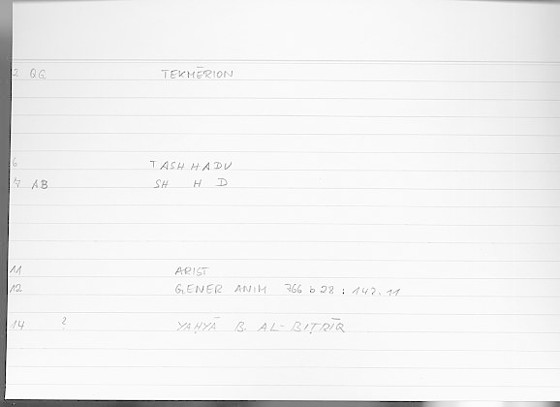 2 QG TEKMĒRION
6 TASHHADU
7 AB SH H D
11 ARIST
12 GENER ANIM 766 b 28 : 147.11
14 ? YAḤYĀ B. AL-BIṬRĪQ